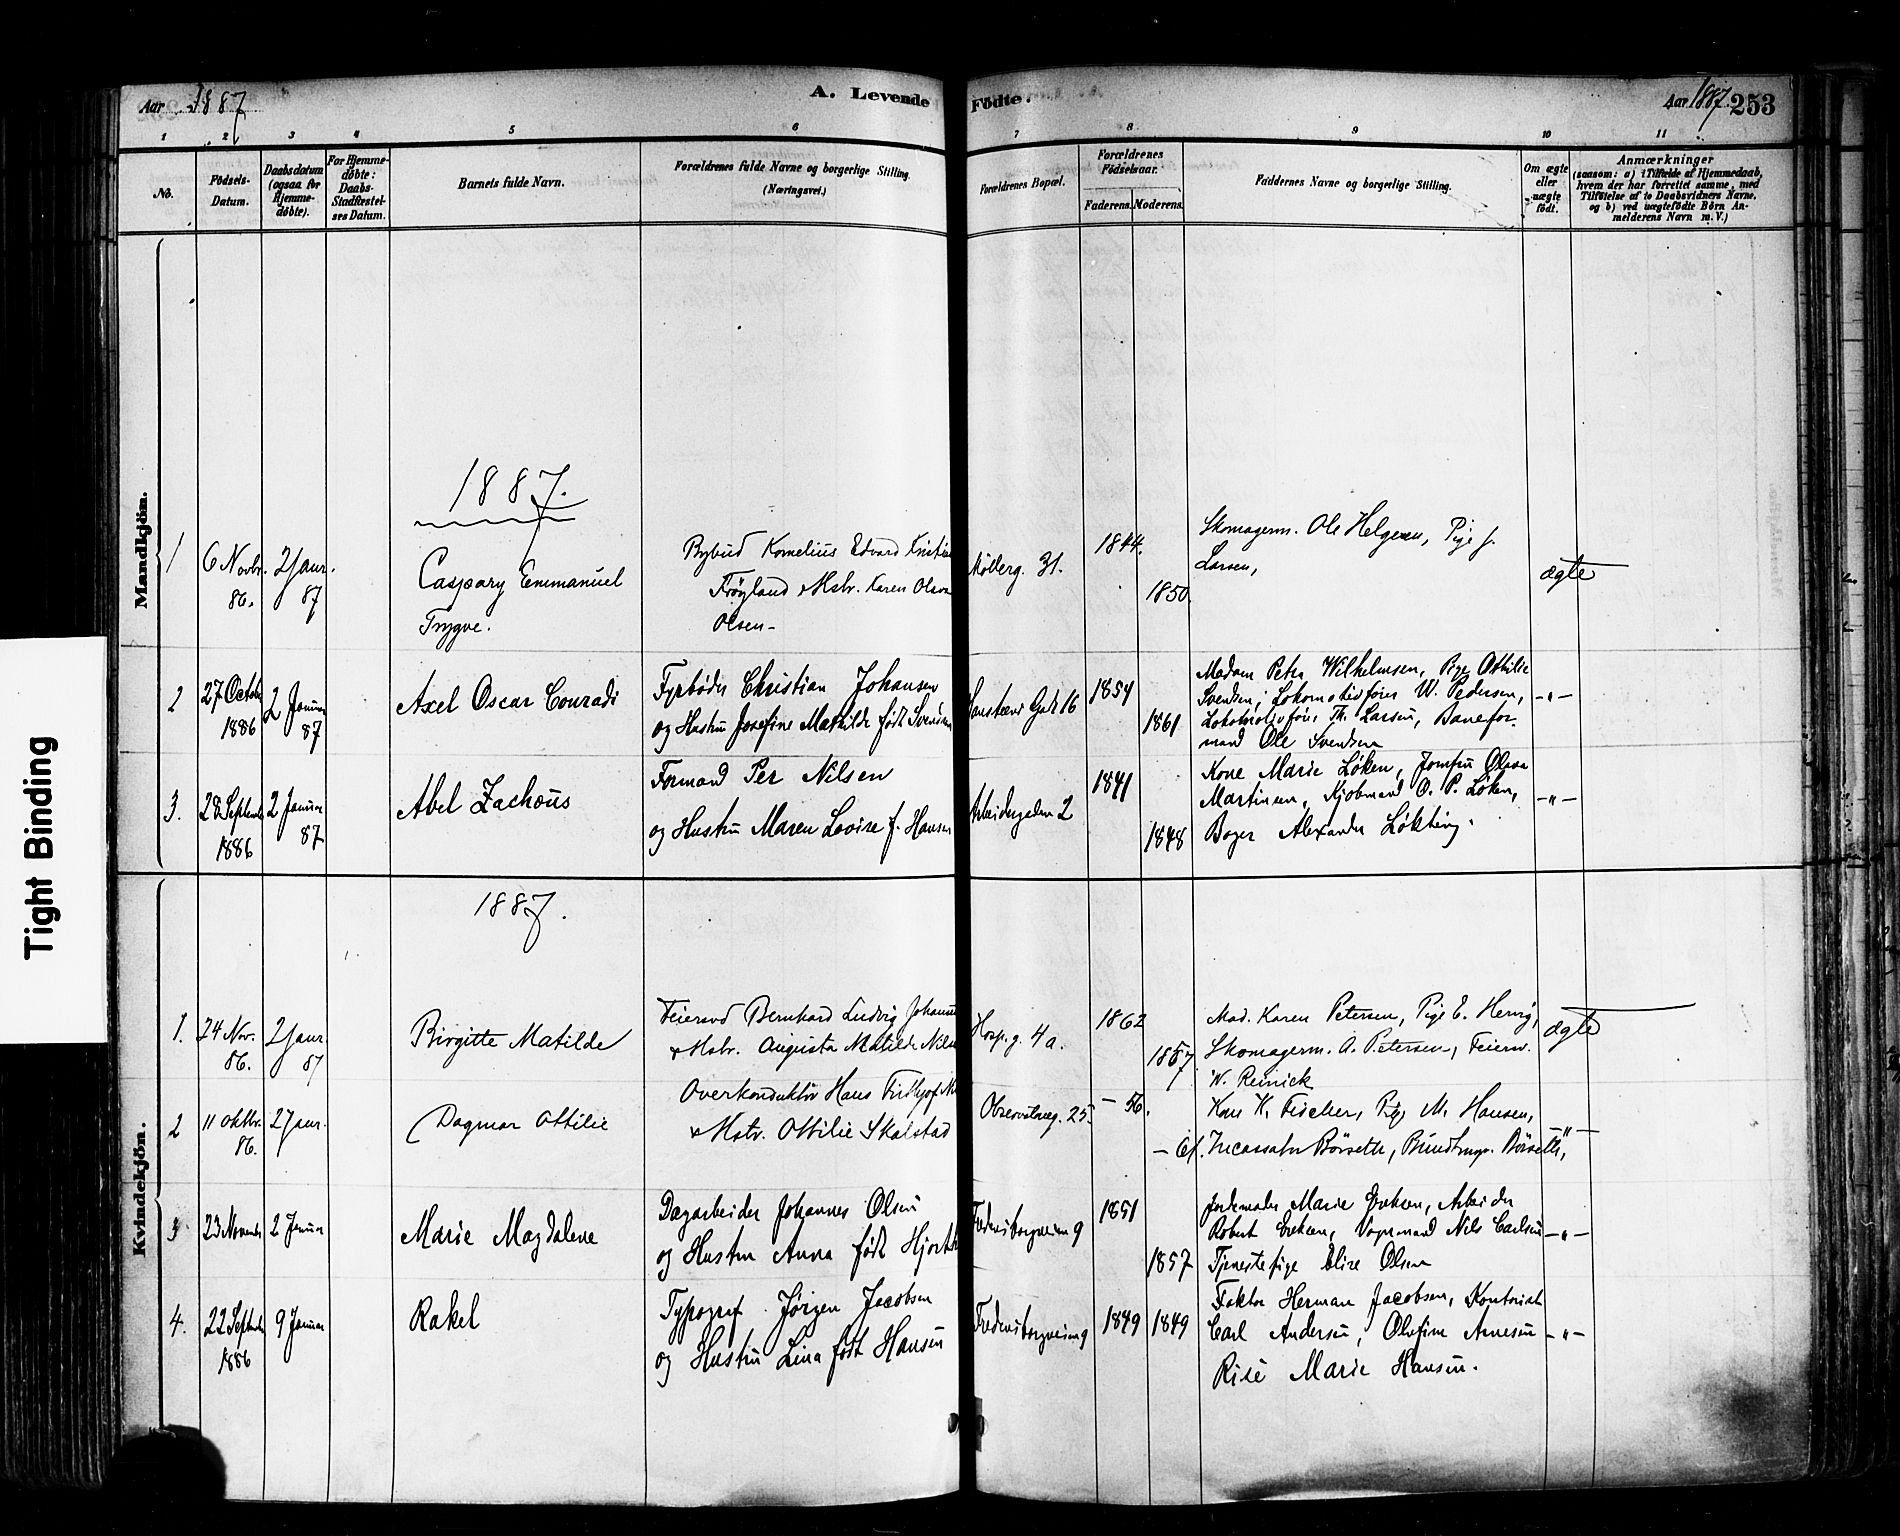 Aar 1887
A. Levende Födte.
Aar 1887. 253
1 2 3 4 5 6 7 8 9 10 11
No.
Födsels-
Datum.
Daabsdatum
(ogsaa for
Hjemme-
döbte).
For Hjemme-
döbte:
Daabs-
Stadfæstel-
ses Datum.
Barnets fulde Navn.
Forældrenes fulde Navne og borgerlige Stilling
(Næringsvei.)
Forældrenes Bopæl.
Forældrenes
Födselsaar.
Faderens. Moderens.
Faddernes Navne og borgerlige Stilling.
Om ægte
eller
uægte
födt.
Anmærkninger
(saasom: a) i Tilfælde af Hjemmedaab,
hvem der har forrettet samme, med
Tilföielse af to Daabsvidners Navne,
og b) ved uægtefödte Börn An-
melderens Navn m. V.)
Mandkjön.
1887.
1
6 Novbr.
86.
2 Janr.
87
Caspary Emmanuel
Trygve.
Bybud Kornelius Edvard Kristia
Frøyland & Hstr. Karen Olava
Olsen-
Mölterg. 31.
1844.
1850
Skomagerm. Ole Helgesen, Pige J.
Larsen,
ægte
2
27 Octob
1886
2 Januar
87
Axel Oscar Conradi
Fyrbøder Christian Johansen
og Hustru Josefine Mathilde født Svendsen
Gade 16
1854
1861
Madam Petra Wilhelmsen, Pige Othilie
Svendsen, Lokomotivfører W. Pedersen,
Lokomotivfører Th. Larsen, Banefor-
mand Ole Svendsen
-"-
3.
28 Septemb
1886
2 Januar
87
Abel Zachæus
Formand Per Nilsen
og Hustru Maren Lovise f. Hansen
Arbeidergaden 2
1841
1848
Kone Marie Løken, Jomfru Olava
Martinsen, Kjøbmand O. P. Løken,
Bager Alexander Løkting.
-"-
Kvindekjön.
1887.
1.
24 Nov.
86.
2 Janr.
87
Birgitte Matilde
Feiersvd Bernhard Ludvig Johansen
& Hstr. Augusta Matilde Nilse
Hosp.g. 4a.
1862
1857
Mad. Karen Petersen, Pige E. Herwig,
Skomagerm. A. Petersen, Feiersv.
W. Reinick
ægte
2
11 Oktbr.
86.
2 Janr.
Dagmar Ottilie
Overkonduktør Hans Fridtjof
& Hstr. Ottilie Skalstad
Observatveg. 25.
- 56.
- 61.
Kone K. Fischer, Pige M. Hansen,
Incassator Börseth, Bundtmgr. Börseth,
-"-
3
23 November
2 Januar
Marie Magdalene
Dagarbeider Johannes Olsen
og Hustru Anna født Hjorth
Frederiksborgveien 9
1851
1857
Jordemoder Marie Eriksen, Arbeider
Robert Eriksen, Vognmand Nils Carlsen
Tjenestepige Elise Olsen
-"-
4.
22 Septemb
1886
9 Januar
Rakel
Typograf Jørgen Jacobsen
og Hustru Lina født Hansen
Frederiksborgveien 9
1849
1849
Faktor Herman Jacobsen, Kontorist
Carl Andersen, Olefine Arnesen
Marie Hansen.
-"-
Tight Binding